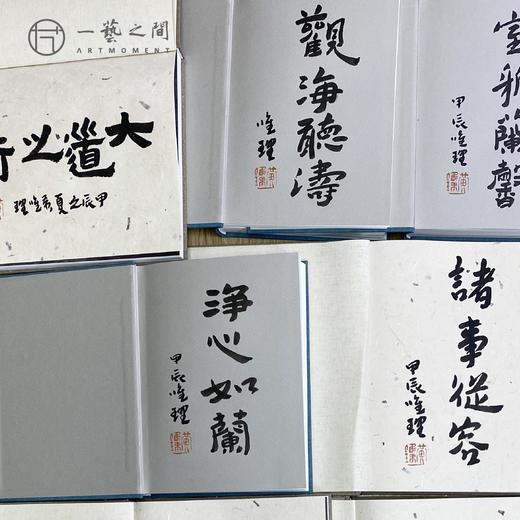 一藝之間
ARTMOMENT
大道必行
甲辰之夏黃唯理
觀海聽濤
唯理
室雅蘭馨
甲辰唯理
淨心如蘭
甲辰唯理
諸事從容
甲辰唯理